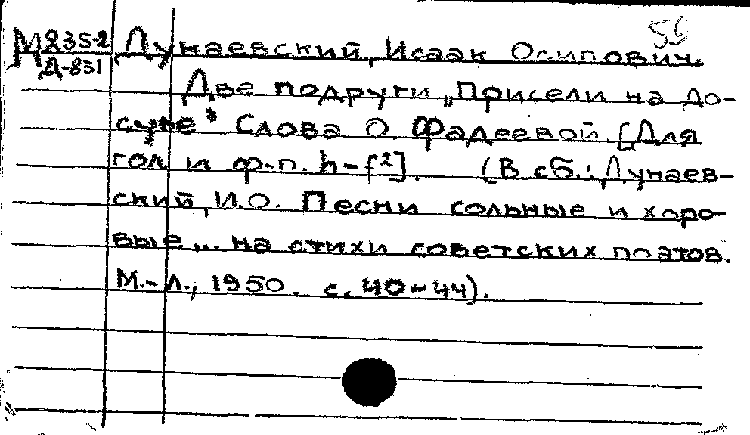 59
М235-2 Дунаевский, Исаак Осипович.
Д-831
Две подруги „Присели на до-
суге" Слова О. Фадеевой. [Для
гол. и ф-п. h-f²]. (В сб.: Дунаев-
ский, И.О. Песни сольные и хоро-
вые... на стихи советских поэтов.
М.-Л., 1950. с. 40-44).